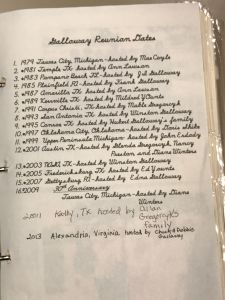 Gallaway Reunion Dates
1. 1979 Tawas City, Michigan-hosted by Mrs Coyts
2. *1981 Temple TX-hosted by Ann Lawson
3. *1983 Pompano Beach FL-hosted by Jd Gallaway
4. 1985 Plainfield-hosted by Frank Gallaway
5. *1987 Amarillo TX-hosted by Ann Lawson
6. *1989 Kerrville TX-hosted by Mildred
7. *1991 Corpus Christi, TX-hosted by
8. *1993 San Antonio TX-hosted by Winston Gallaway
9. *1995 Conroe TX-hosted by family
10. *1997 Oklahoma City, Oklahoma-hosted by Doris
11. *1999 Upper Peninsula, Michigan-hosted by John
12. *2001 Austin TX-hosted by Glenda Nancy
Preston and Diane Winters
13. *2003 TX-hosted by Winston Gallaway
14. *2005 Fredericksburg TX-hosted by Ed Younts
15. *2007 Gettysburg-hosted by Edna Gallaway
16. *2009 30th Anniversary
Tawas City, Michigan-hosted by Diane
Winters
2011 Katy, TX hosted by Allan
family
2013 Alexandria, Virginia hosted by Debbie
Gallaway